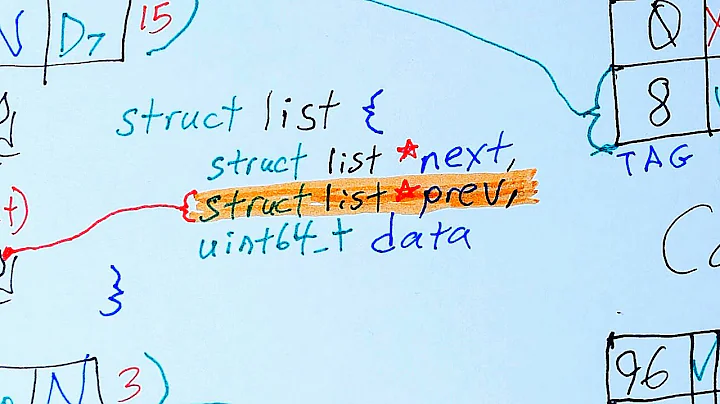 V D7 15
0
8
TAG
struct list {
struct list *next,
struct list *prev,
uint64_t data
}
t)
Co
N 3)
96 V